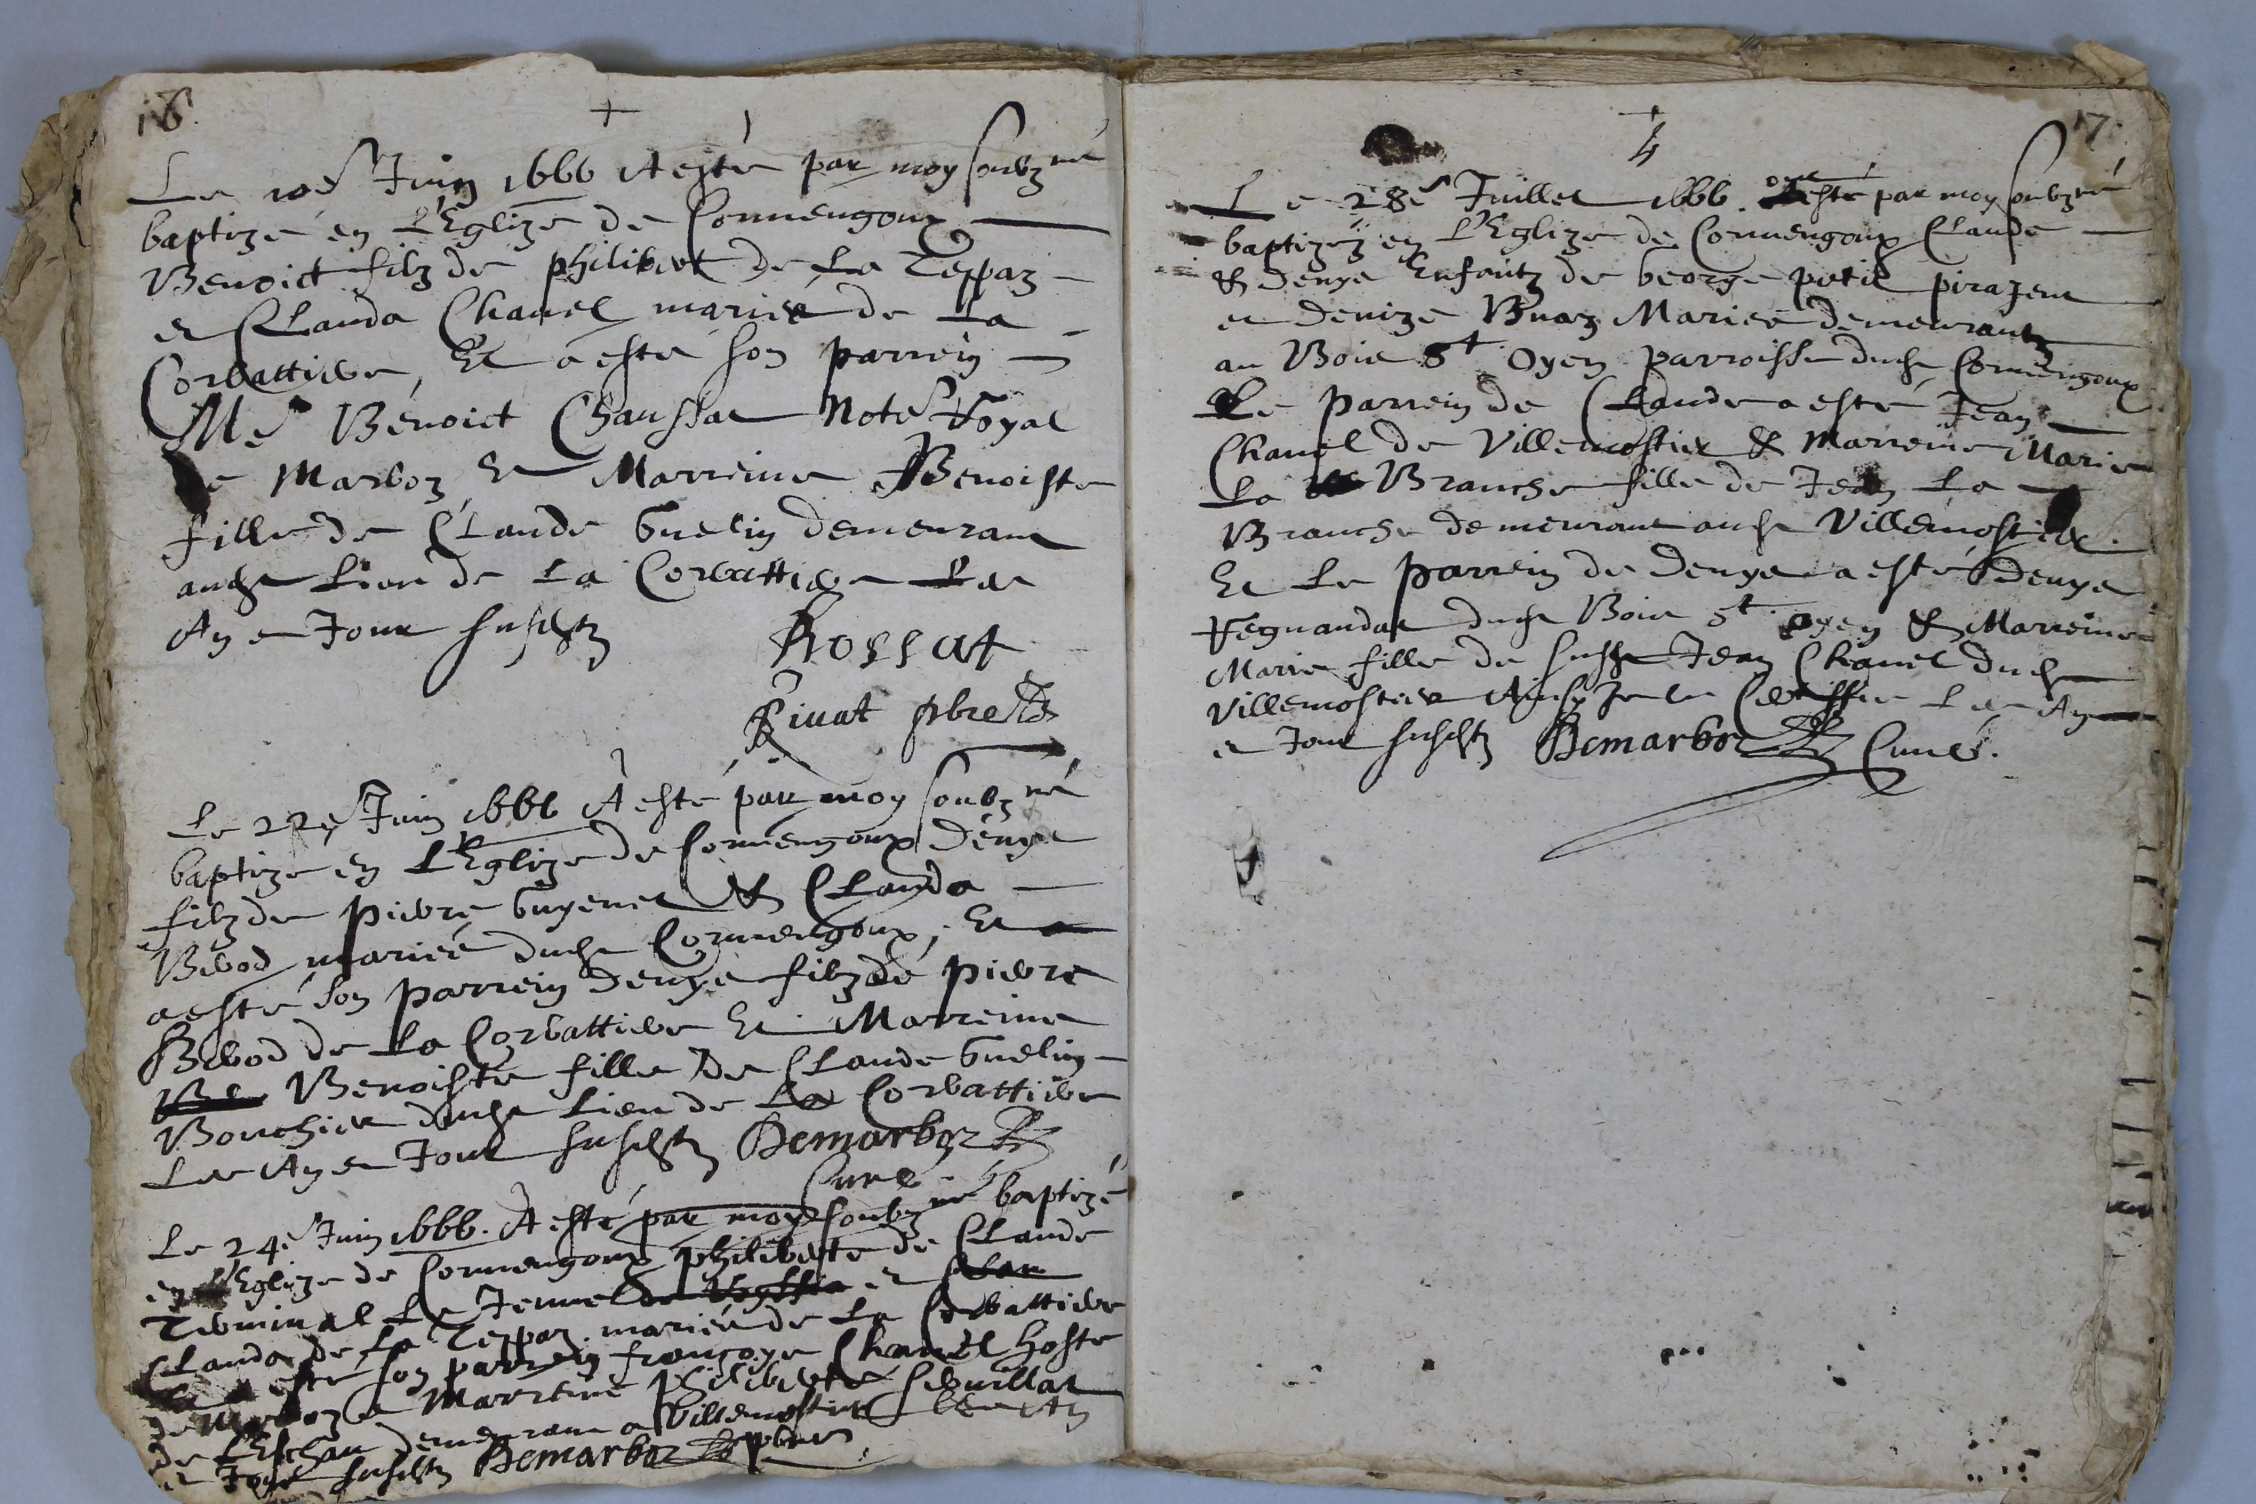 16.
+
Le 10e Juin 1666 A esté par moy soubzné
baptizé en L'Eglize de Cormengoux
Benoict filz de philibert de La Teppaz
et Clauda Chanel mariés de La
Corbattiere, Et a esté son parrein
Me Benoict Chaussat Note Royal
de Marboz Et Marreine Benoiste
fille de Claude Guelin demeurant
audt Lieu de La Corbattiere Les
An et Jour susdts
Rossat
Rivat pbre
Le 22e Juin 1666 A esté par moy soubzné
baptizé en L'Eglize de Cormengoux Denys
filz de Pierre Guyenet & Clauda
Berod mariés dudt Cormengoux, Et
a esté son parrein Denys filz de Pierre
Berod de La Corbattiere Et Marreine
Benoiste fille de Claude Guelin
Bouchier dudt Lieu de La Corbattiere
Les An et Jour susdts Demarboz
Curé
Le 24e Juin 1666. A esté par moy soubzné baptizé
en L'Eglize de Cormengoux philiberte de Claude
Terminal Le Jeune et
Clauda de La Teppaz mariés de La Corbattiere
esté son parrein françoys Chanel hoste
de Marboz et Marreine philiberte
de L'Eschau demeurant a Villemostier Les An
et Jour susdts Demarboz pbre
17
+
4
Le 28e Juillet 1666. ont esté par moy soubzné
baptizéz en L'Eglize de Cormengoux Claude
& Denys Enfantz de George petit pirajent
et Denize Buaz Mariés demeurantz
au Bois St Oyen parroisse dudt Cormengoux
Le parrein de Claude a esté Jean
Chanel de Villemostier & Marreine Marie
La Branche fille de Jean La
Branche demeurant audt Villemostier.
Et Le parrein de Denys a esté Denys
Regnaudat dudt Bois St oyen & Marreine
Marie fille de susdt Jean Chanel dudt
Villemostier Ainsy Je le Certiffie Les An
et Jour susdts Demarboz Curé.